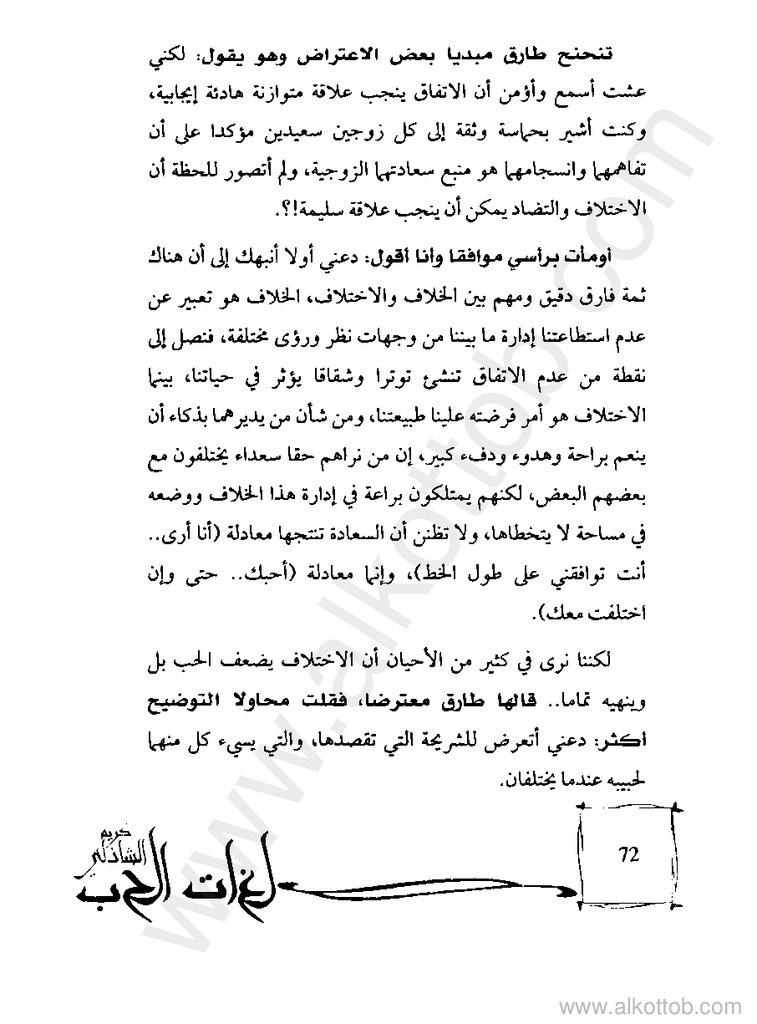 تنحنح طارق مبديا بعض الاعتراض وهو يقول: لكني
عشت أسمع وأؤمن أن الاتفاق ينجب علاقة متوازنة هادئة إيجابية،
وكنت أشير بحماسة وثقة إلى كل زوجين سعيدين مؤكدا على أن
تفاهمهما وانسجامهما هو منبع سعادتهما الزوجية، ولم أتصور للحظة أن
الاختلاف والتضاد يمكن أن ينجب علاقة سليمة!؟.
أومأت برأسي موافقا وأنا أقول: دعني أولا أنبهك إلى أن هناك
ثمة فارق دقيق ومهم بين الخلاف والاختلاف، الخلاف هو تعبير عن
عدم استطاعتنا إدارة ما بيننا من وجهات نظر ورؤى مختلفة، فنصل إلى
نقطة من عدم الاتفاق تنشئ توترا وشقاقا يؤثر في حياتنا، بينما
الاختلاف هو أمر فرضته علينا طبيعتنا، ومن شأن من يديرهما بذكاء أن
ينعم براحة وهدوء ودفء كبير، إن من نراهم حقا سعداء يختلفون مع
بعضهم البعض، لكنهم يمتلكون براعة في إدارة هذا الخلاف ووضعه
في مساحة لا يتخطاها، ولا تظنن أن السعادة تنتجها معادلة (أنا أرى..
أنت توافقني على طول الخط)، وإنما معادلة (أحبك.. حتى وإن
اختلفت معك).
لكننا نرى في كثير من الأحيان أن الاختلاف يضعف الحب بل
وينهيه تماما.. قالها طارق معترضا، فقلت محاولا التوضيح
أكثر: دعني أتعرض للشريحة التي تقصدها، والتي يسيء كل منهما
لحبيبه عندما يختلفان.
72
كريم
الشاذلي
لغات الحب
www.alkottob.com
www.alkottob.com